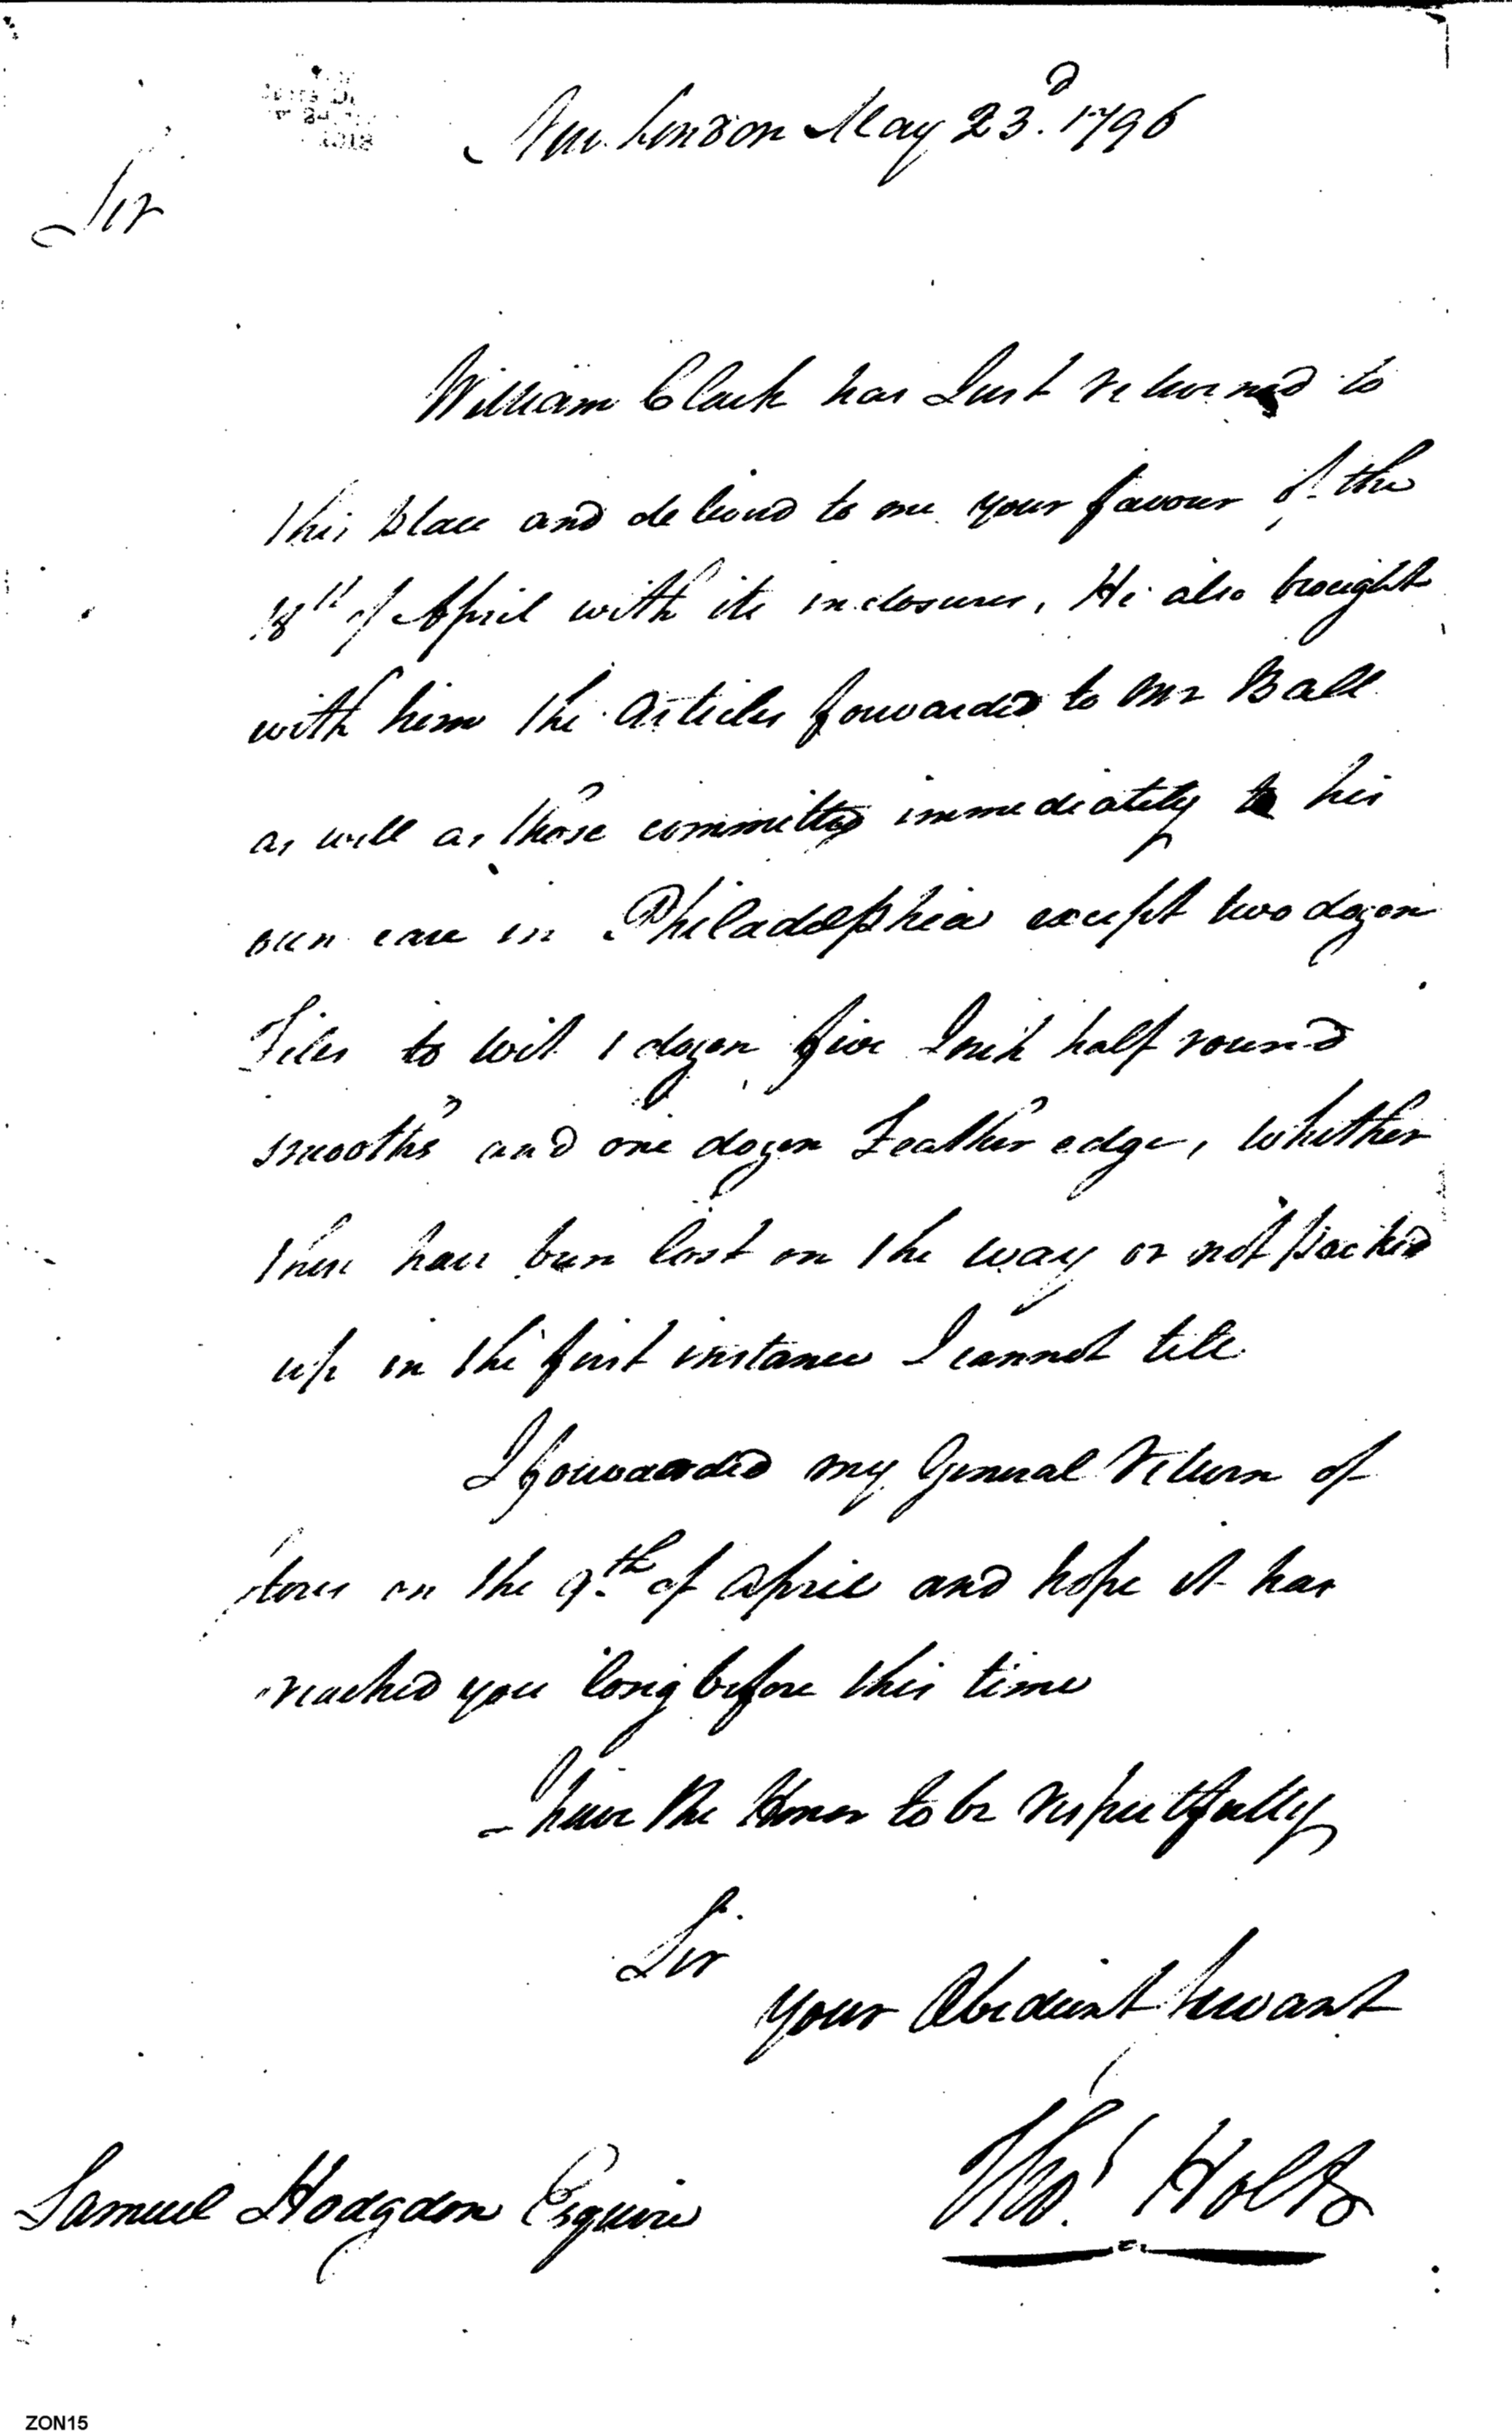 New London May 23d. 1796
Sir
William Clark has Just returned to
this place and delivered to me your favour of the
18th of April with its inclosures, He also brought
with him the Articles forwarded to Mr Ball
as well as those committed immediately to his
own care in Philadelphia except two dozen
Files to wit 1 dozen five Inch half round
smooths and one dozen Feather edge, whether
these have been lost on the way or not packed
up in the first instance I cannot tell
I forwarded my General Return of
stores on the 9th. of April and hope it has
reached you long before this time
I have the Honor to be respectfully
Sir
your Obedient Servant
Thos. Holt
Samuel Hodgdon Esquire
ZON15